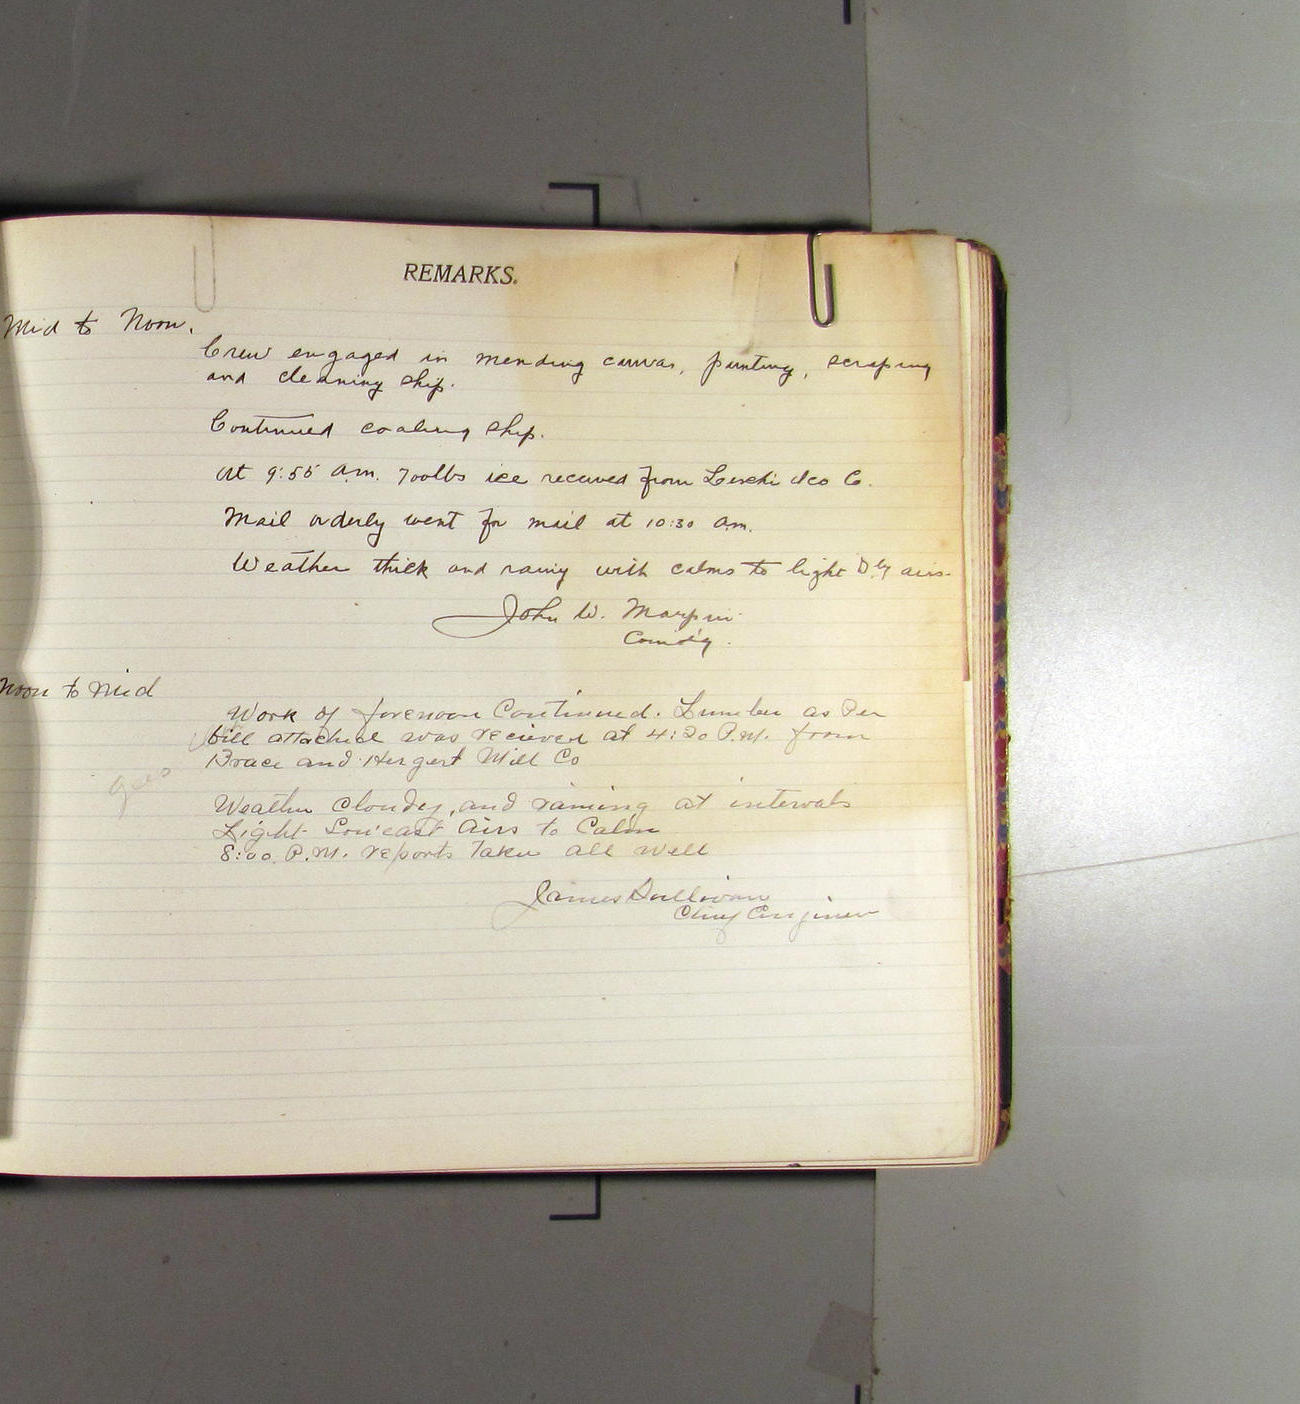 REMARKS.
Mid to Noon.
Crew engaged in mending canvas, painting, scraping
and cleaning ship.
Continued coaling ship.
At 9:55 a.m. 700lbs ice received from Leschi Ice Co.
Mail orderly went for mail at 10:30 a.m.
Weather thick and rainy with calms to light airs.
John W.
Comd'g.
Noon to Mid
Work of forenoon Continued. Lumber as Per
bill attached was recieved at 4:20 P.M. from
Brace and Hergert Mill Co
goes
Weather Cloudy, and raining at intervals
Light Sou'east Airs to Calm
8:00 P.M. reports Taken all Well
James Sullivan
Chief Engineer